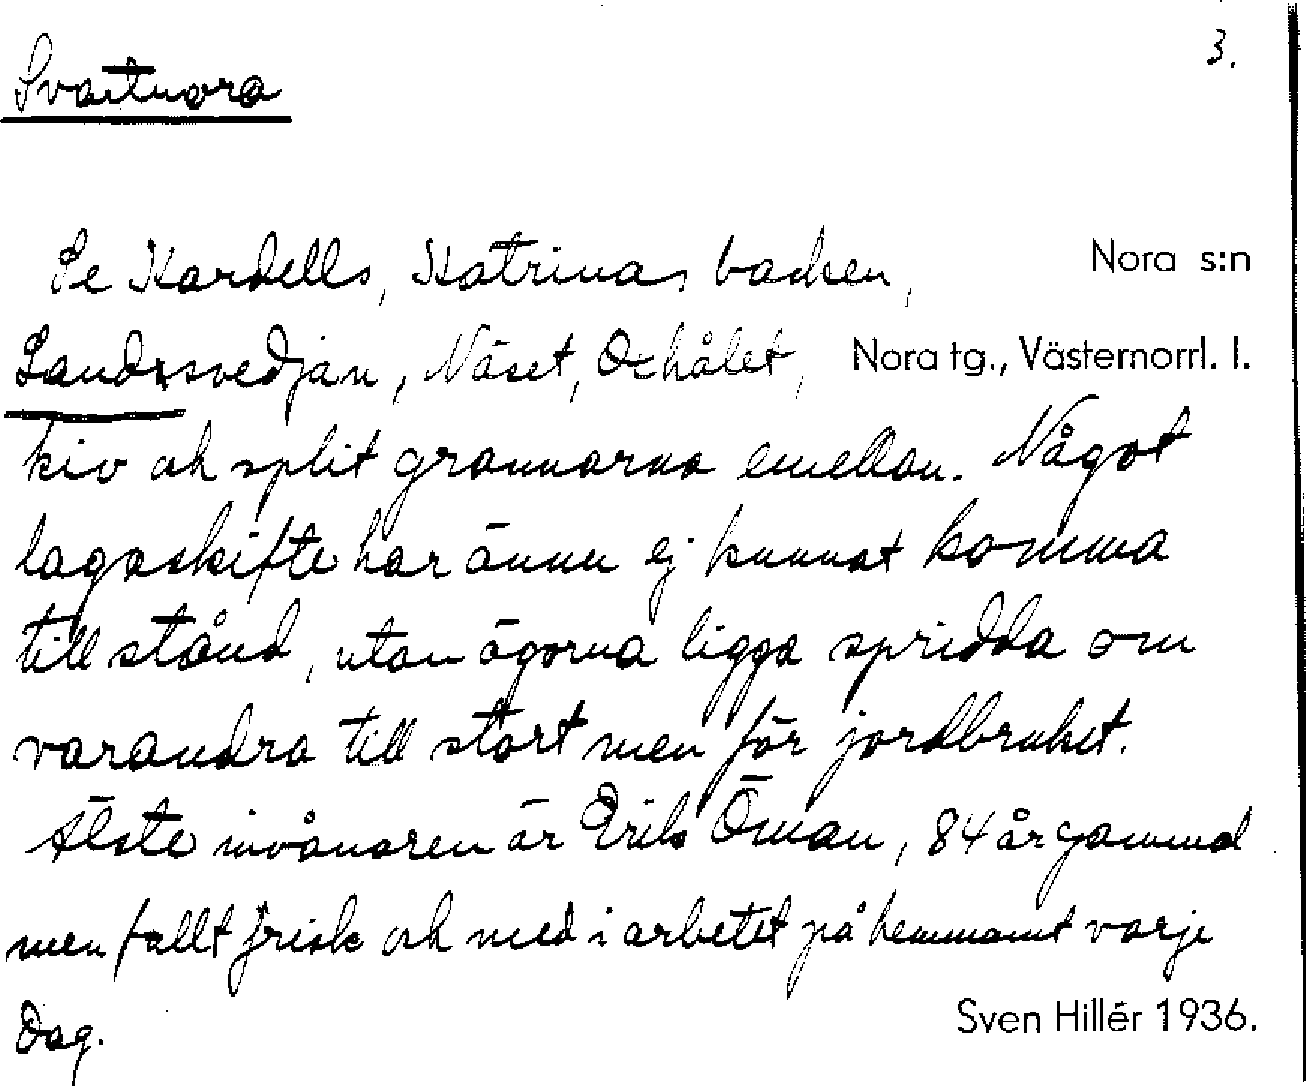 3.
Svartnora
Se Kardells, Katrinas backen,
Nora s:n
Landssvedjan, Näset, Oxhålet,
Nora tg., Västernorrl. l.
kiv och split grannarna emellan. Något
lagaskifte har ännu ej kunnat komma
till stånd, utan ägorna ligga spridda om
varandra till stort men för jordbruket.
Älste invånaren är Erik Öman, 84 år gammal
men fullt frisk och med i arbetet på hemmanet varje
dag.
Sven Hillér 1936.